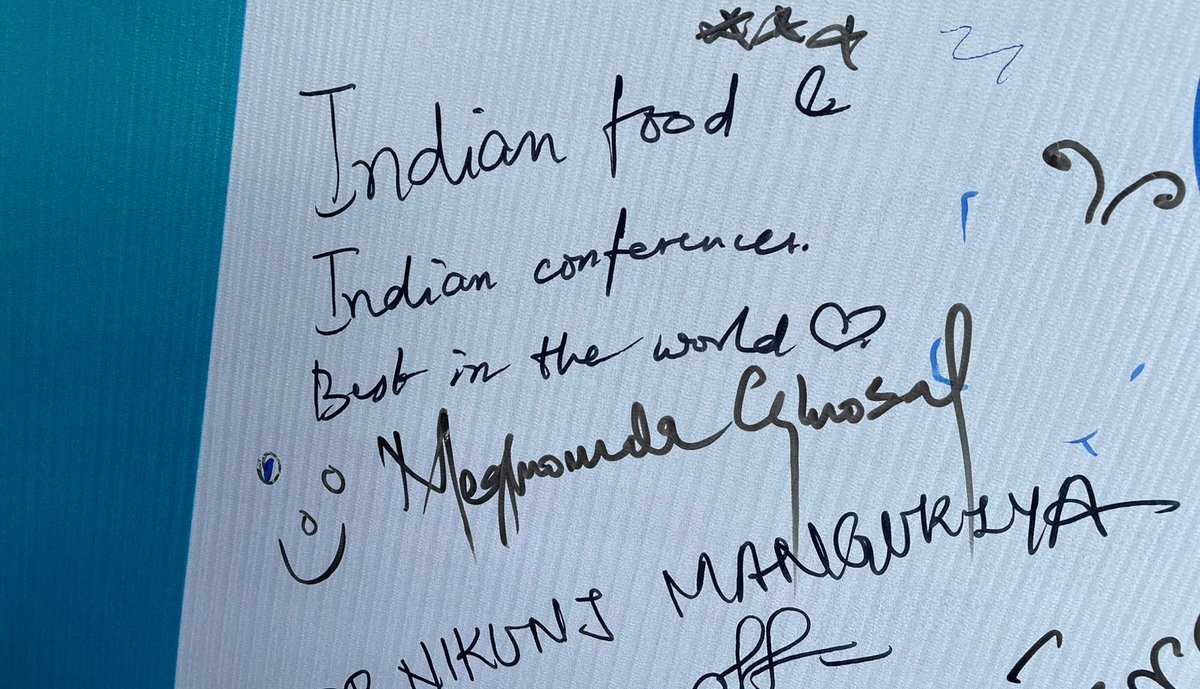 Indian food &
Indian conferences.
Best in the world ♡
Meghnonda Ghosal
NIKUNJ MANGUKIYA